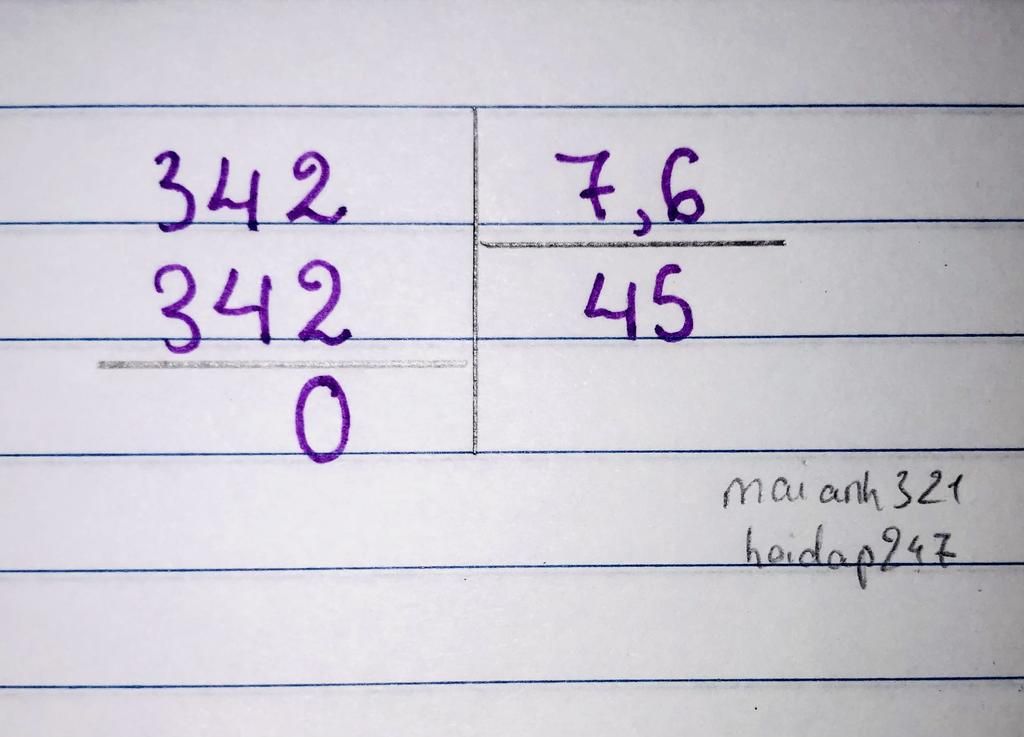 342 7,6
342 45
0
maianh321
hoidap247